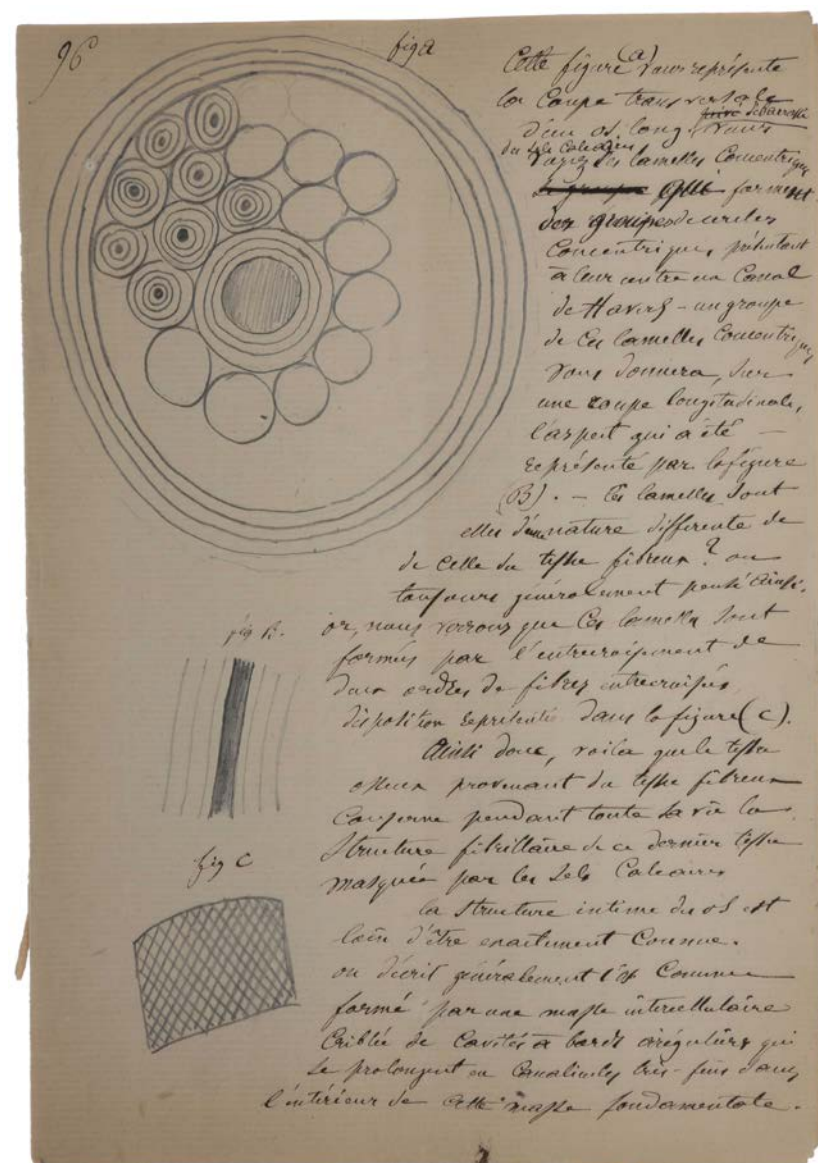 96
fig a
Cette figure (a) vous représente
la Coupe transversale
d'un os long. vous
privé débarrassé
des sels Calcaires
voyez des lamelles Concentriques
le groupe qui forment
des groupes de cercles
Concentriques, présentant
à leur centre un Canal
de Havers - un groupe
de Ces lamelles Concentriques
vous donnera, sur
une coupe longitudinale,
l'aspect qui a été —
représenté par la figure
(B). — Ces lamelles sont
elles d'une nature différente de
de celle du tissu fibreux ? on
toujours généralement pensé ainsi.
fig B.
or, nous verrons que Ces lamelles sont
formées par l'entrecroisement de
deux ordres de fibres entrecroisées,
disposition représentée dans la figure (C).
Ainsi donc, voilà que le tissu
osseux provenant du tissu fibreux
Conserve pendant toute sa vie la
Structure fibrillaire de ce dernier tissu
fig C
masquée par les sels Calcaires
la structure intime du os est
loin d'être exactement Connue.
on décrit généralement l'os Comme
formé par une masse intercellulaire
Criblée de Cavités à bords irréguliers qui
se prolongent en Canalicules très-fins dans
l'intérieur de Cette masse fondamentale.